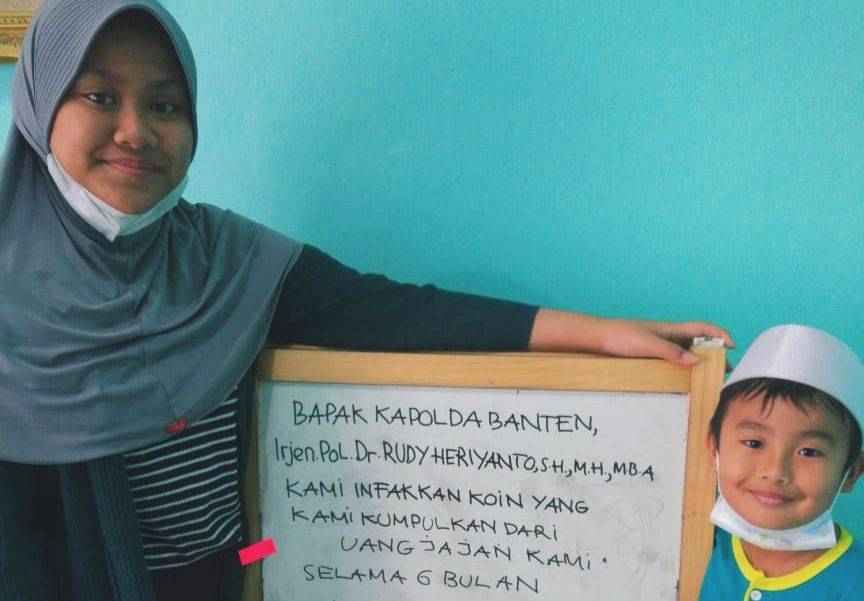 BAPAK KAPOLDA BANTEN,
Irjen.Pol.Dr.RUDY HERIYANTO,SH,,M.H,,MBA
KAMI INFAKKAN KOIN YANG
KAMI KUMPULKAN DARI
UANG JAJAN KAMI
SELAMA 6 BULAN